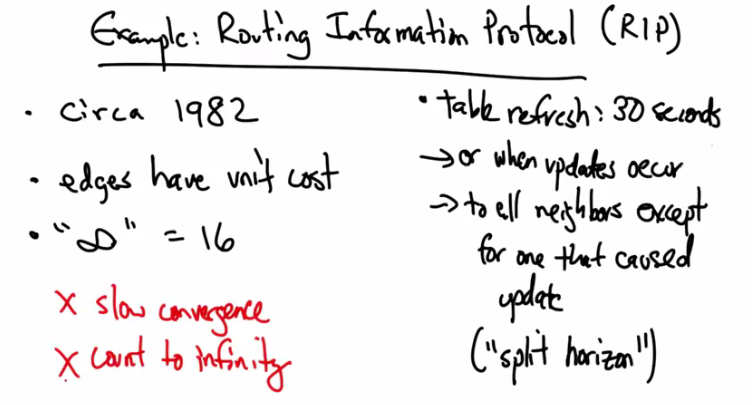 Example: Routing Information Protocol (RIP)
• circa 1982
• edges have unit cost
• "∞" = 16
X slow convergence
X count to infinity
• table refresh: 30 seconds
→ or when updates occur
→ to all neighbors except
for one that caused
update
("split horizon")